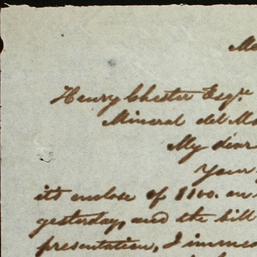 Me
Henry Chester Esqr.
Mineral del Mo
My dear
Your
its enclose of $100. on
yesterday, and the bill
presentation, I immed